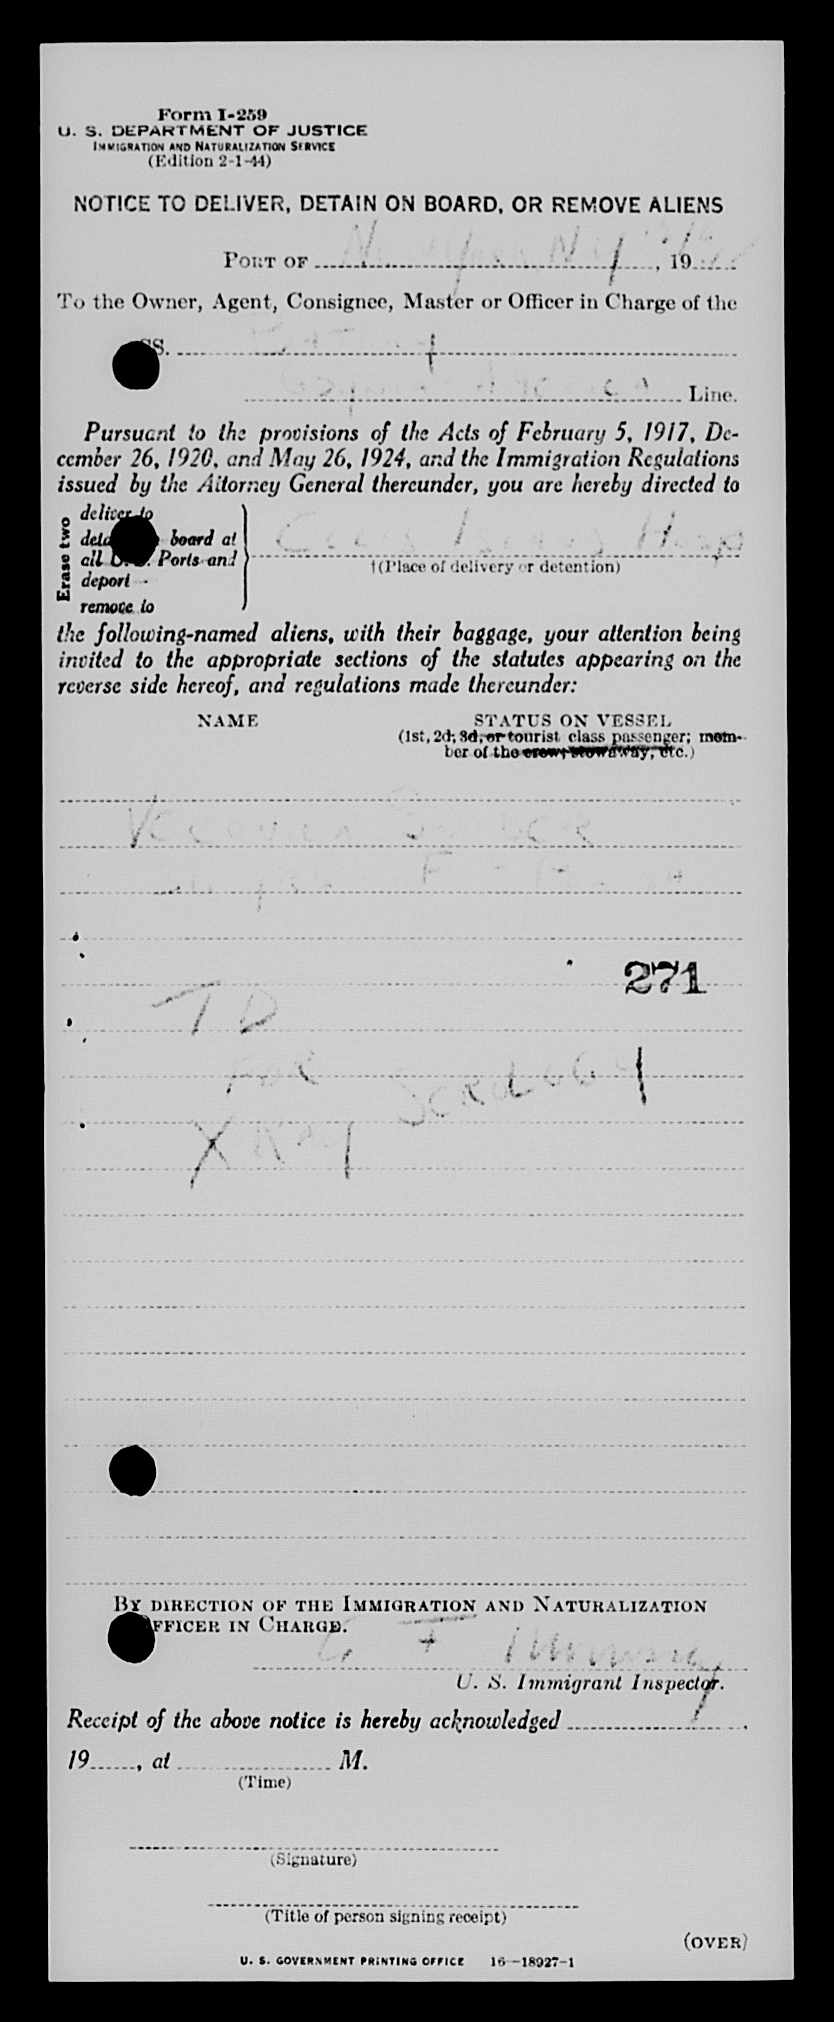 Form I-259
U. S. DEPARTMENT OF JUSTICE
IMMIGRATION AND NATURALIZATION SERVICE
(Edition 2-1-44)
NOTICE TO DELIVER, DETAIN ON BOARD, OR REMOVE ALIENS
PORT OF New York, N Y, 19
To the Owner, Agent, Consignee, Master or Officer in Charge of the
SS.
Line.
Pursuant to the provisions of the Acts of February 5, 1917, De-
cember 26, 1920, and May 26, 1924, and the Immigration Regulations
issued by the Attorney General thereunder, you are hereby directed to
Erase two
deliver to
board at
all U. S. Ports and
deport
remove to
Ellis Island Hosp
†(Place of delivery or detention)
the following-named aliens, with their baggage, your attention being
invited to the appropriate sections of the statutes appearing on the
reverse side hereof, and regulations made thereunder:
NAME STATUS ON VESSEL
(1st, 2d, 3d, or tourist class passenger; mem-
ber of the crew, stowaway, etc.)
271
TD
For
X Ray
BY DIRECTION OF THE IMMIGRATION AND NATURALIZATION
OFFICER IN CHARGE.
U. S. Immigrant Inspector.
Receipt of the above notice is hereby acknowledged
19, at M.
(Time)
(Signature)
(Title of person signing receipt)
(OVER)
U. S. GOVERNMENT PRINTING OFFICE 16—18927-1